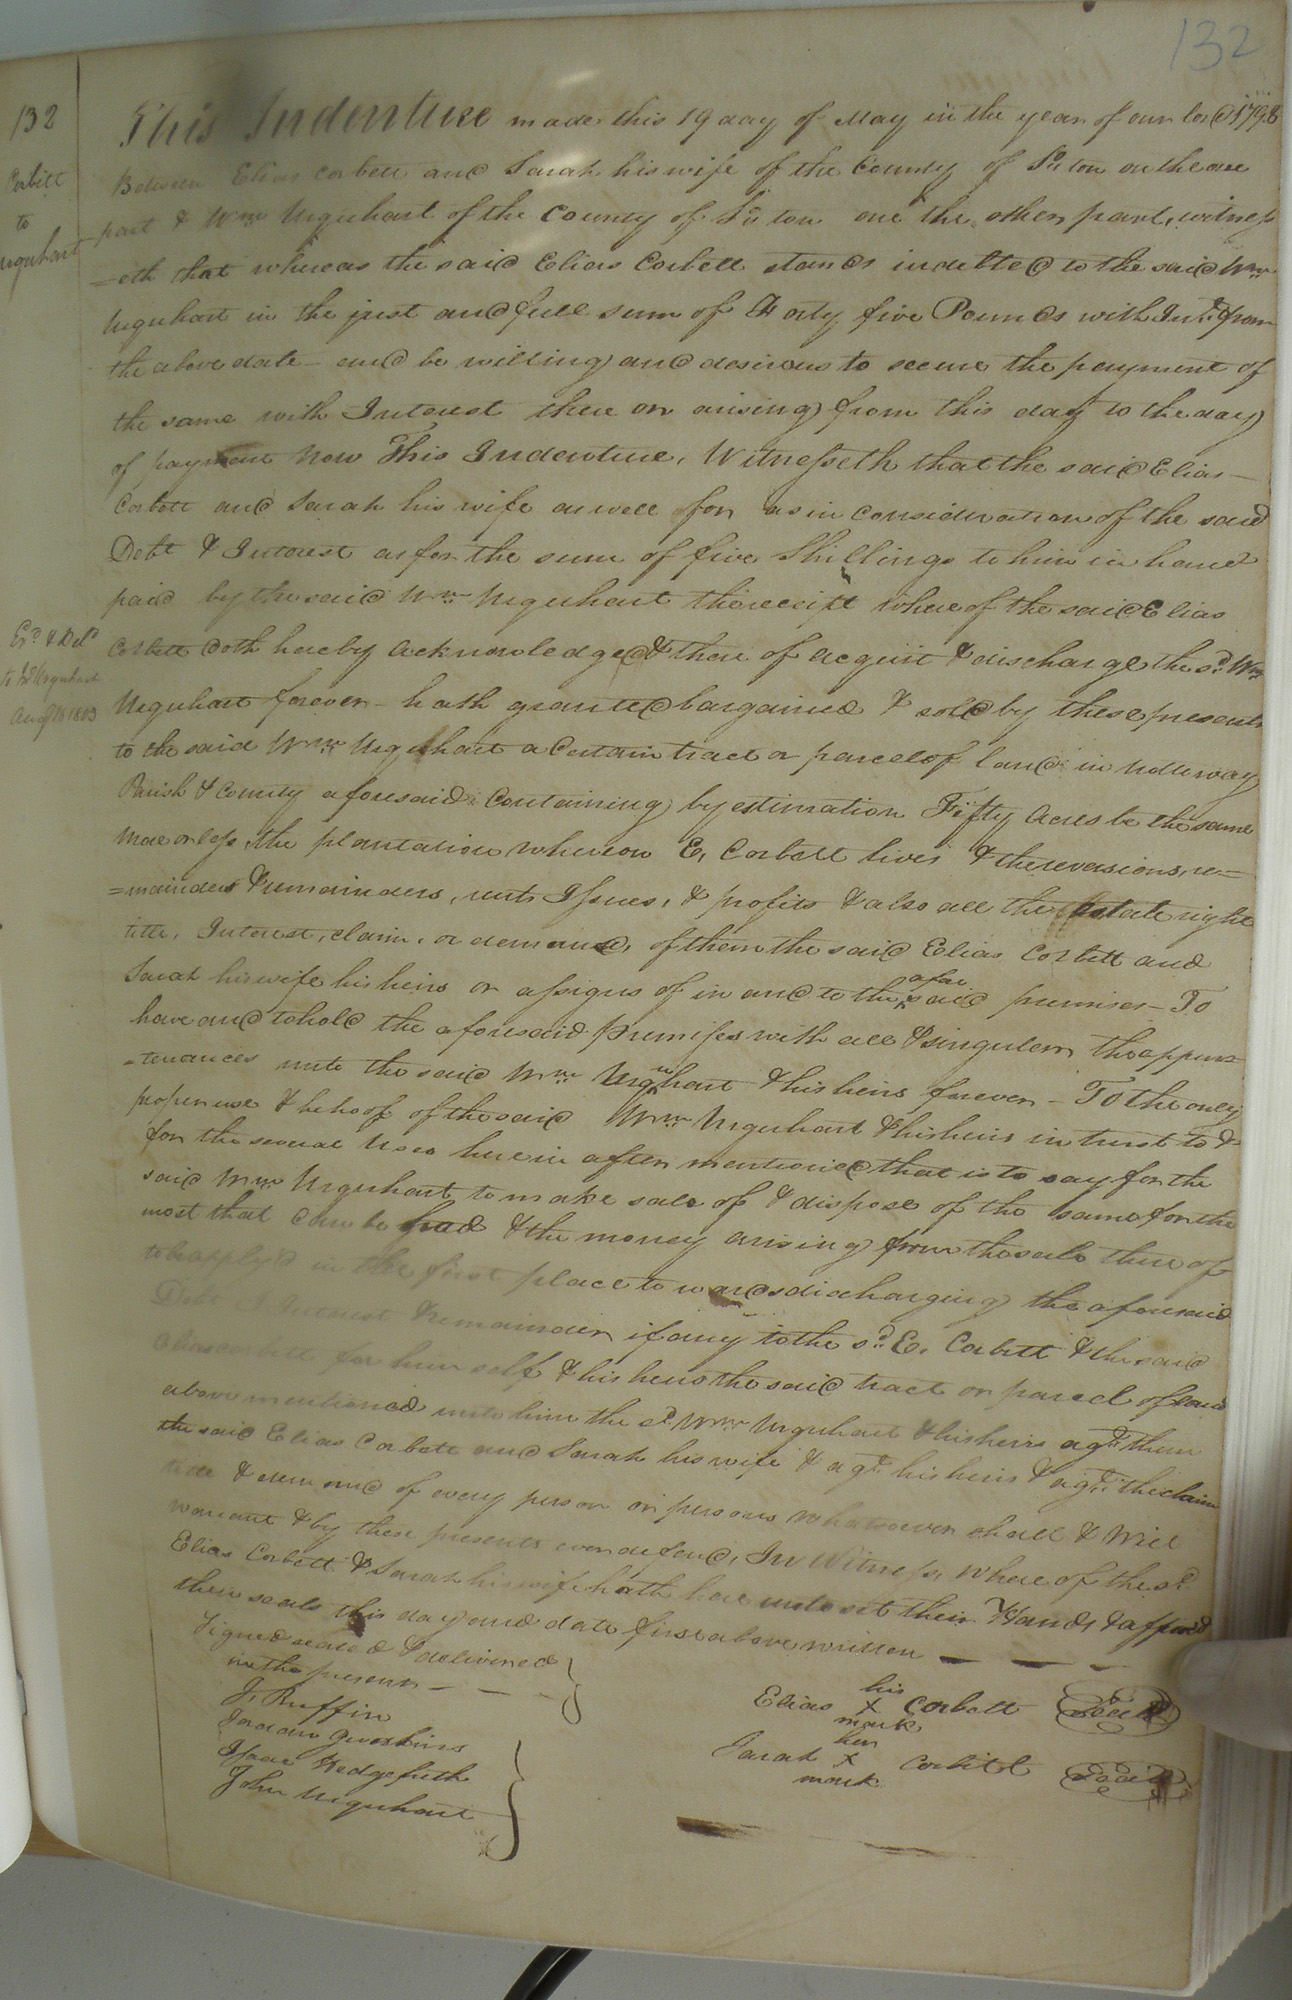 132
132
Corbitt
to
Urquhart
This Indenture made this 19 day of May in the year of our lord 1798
Between Elias Corbett and Sarah his wife of the County of So ton on the one
part & Wm Urquhart of the County of So ton one the other part, witness
=eth that whereas the said Elias Corbett stands indebted to the said Wm
Urquhart in the just and full sum of Forty five Pounds with Int. from
the above date - and be willing and desirous to secure the payment of
the same with Interest there on arising from this day to the day
of payment Now This Indenture, Witnesseth that the said Elias -
Corbett and Sarah his wife as well for as in consideration of the said
Debt & Interest as for the sum of five Shillings to him in hand
paid by the said Wm Urquhart the receipt where of the said Elias
Corbett doth hereby acknowledge & there of acquit & discharge the sd. Wm
Urquhart forever - hath granted bargained & sold by these presents
to the said Wm Urquhart a Certain tract or parcel of land in Notteway
Parish & County aforesaid Containing by estimation Fifty Acres be the same
more or less, the plantation whereon E. Corbett lives & the reversions, re=
=mainders & remainders, rents Issues, & profits & also all the estate right
title, Interest, claim, or demand, of them the said Elias Corbett and
Sarah his wife his heirs or assigns of in and to the afore said premises - To
have and to hold the aforesaid premises with all & singuler, the appur=
=tenances unto the said Wm Urquhart & his heirs forever - To the only
proper use & behoof of the said Wm Urquhart & his heirs in trust to &
for the several Uses here in after mentioned that is to say for the
said Wm Urquhart to make sale of & dispose of the same for the
most that can be had & the money arising from the sale there of
to be apply'd in the first place to wards discharging the aforesaid
Debt & Interest & remainder if any to the sd. E. Corbett & the said
Elias Corbett for him self & his heirs the said tract or parcel of land
above mentioned unto him the sd. Wm Urquhart & his heirs agt. them
the said Elias Corbett and Sarah his wife & agt. his heirs & agt. the claim
title & demand of every person or persons whatsoever shall & will
warrant & by these presents ever defend, In Witness where of the sd.
Elias Corbett & Sarah his wife hath here unto set their Hands & affixed
their seals this day and date first above written
Ex.d & Deld
to Jd Urquhart
Aug 18 1803
Signed sealed & delivered
in the presents -
J. Ruffin
Jordan
Isaac Hedgpeth
John Urquhart
his
Elias X Corbett Seal
mark
her
Sarah X Corbitt Seal
mark